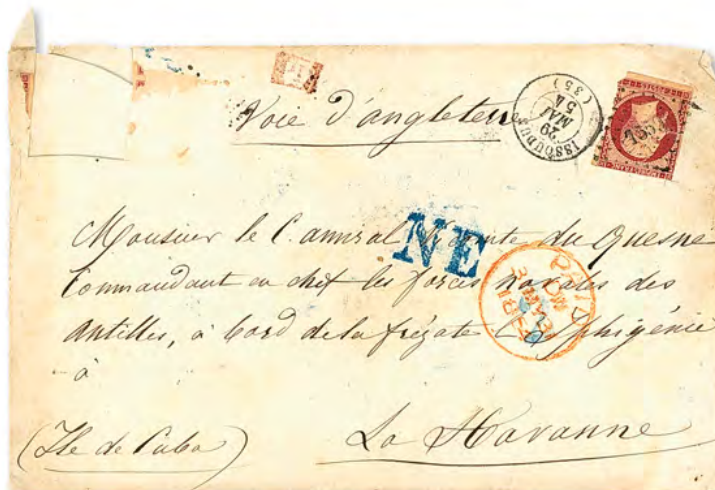 Voie d'angleterre
ISSOUDUN
29
MAI
54
(35)
Monsieur le C. amiral Vicomte du Quesne
Commandant en chef les forces navales des
Antilles, à bord de la frégate L'Iphigénie
à
(Ile de Cuba)
La Havanne
NE
PAID